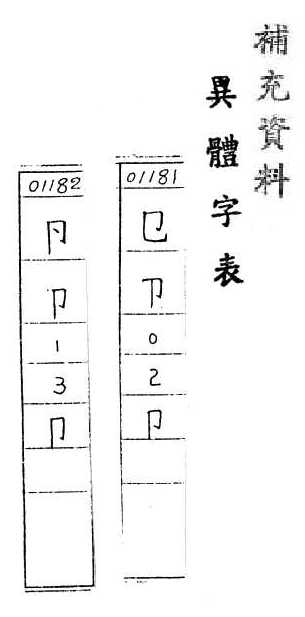 補充資料
異體字表
01181
㔾
0
2
卩
01182
卪
卩
1
3
卩